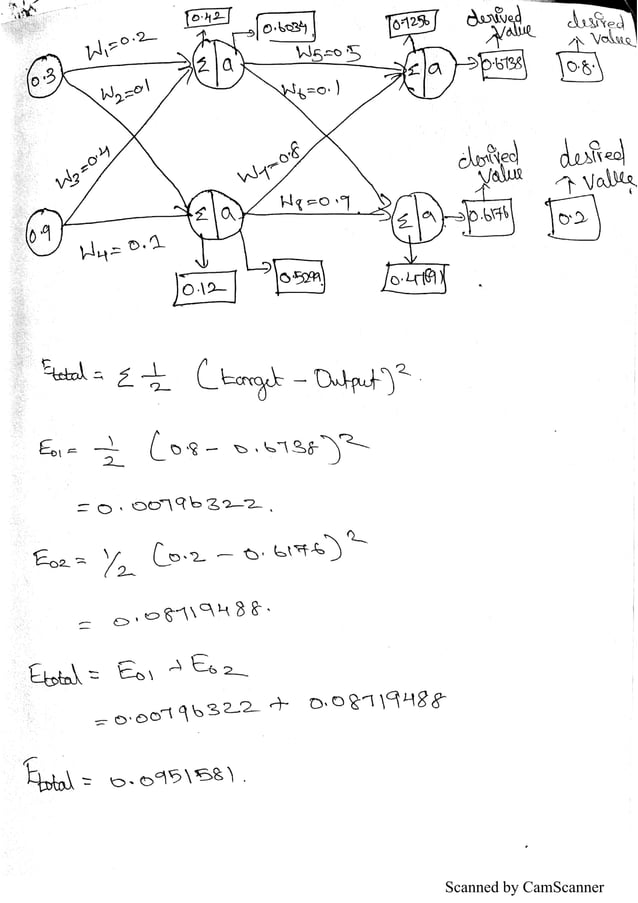 0.42
0.6034
0.7256
derived
value
desired
value
W₁=0.2
W₅=0.5
0.3
Σ a
Σ a
0.6738
0.8.
W₂=01
W₆=0.1
W₃=0.4
W₇=0.8
derived
value
desired
value
0.9
Σ a
W₈=0.9
Σ a
0.6176
0.2
W₄=0.1
0.12
0.5299
Etotal = Σ ½ (target - Output)².
E01 = ½ (0.8 - 0.6738)²
= 0.00796322.
E02 = 1/2 (0.2 - 0.6176)²
= 0.08719488.
Etotal = E01 + E02
= 0.00796322 + 0.08719488
Etotal = 0.0951581.
Scanned by CamScanner